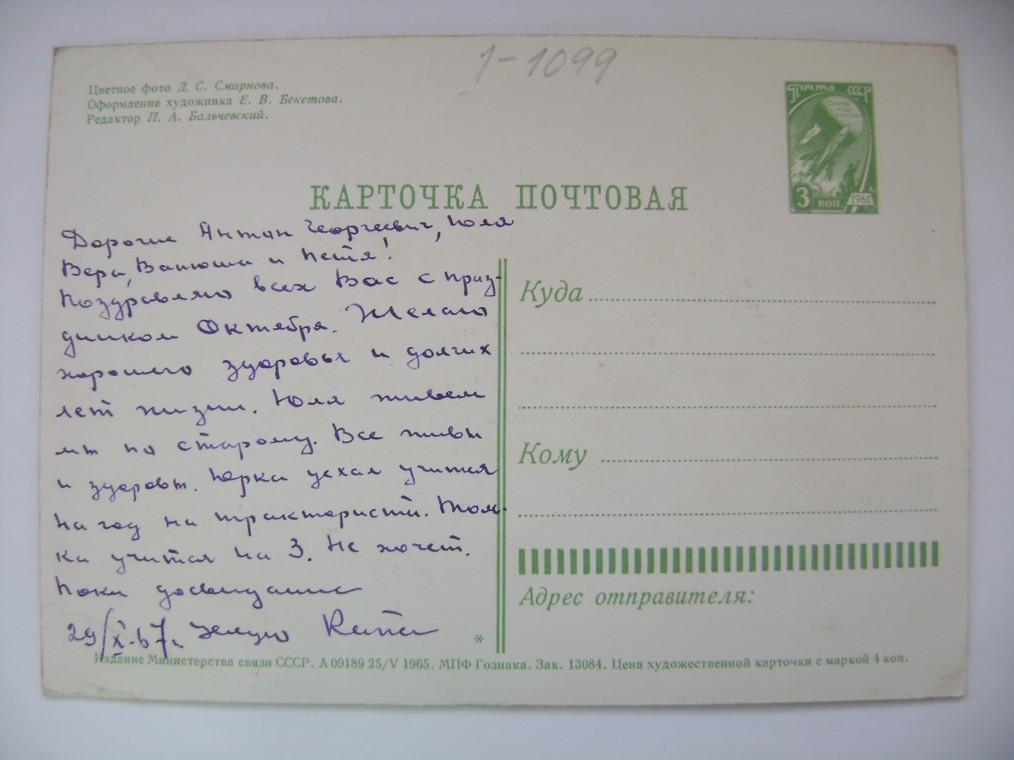 1-1099
Цветное фото Д. С. Смирнова.
Оформление художника Е. В. Бекетова.
Редактор П. А. Бальчевский.
Почта СССР
3 коп
1961
КАРТОЧКА ПОЧТОВАЯ
Дорогие Антон Георгиевич, Юля
Вера, Ванюша и Петя!
Поздравляю всех Вас с праз-
дником Октября. Желаю
хорошего здоровья и долгих
лет жизни. Юля живем
мы по старому. Все живы
и здоровы. Юрка уехал учится
на год на тракториста. Том-
ка учится на 3. Не хочет.
Пока досвидание
29/X-67г. Целую Катя
Куда
Кому
Адрес отправителя:
*
Издание Министерства связи СССР. А 09189 25/V 1965. МПФ Гознака. Зак. 13084. Цена художественной карточки с маркой 4 коп.